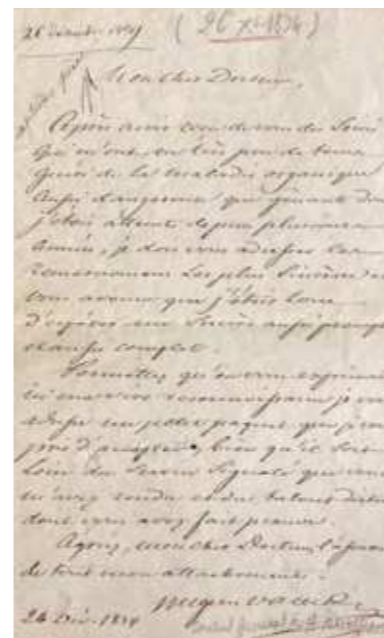 26 Décembre 1874 (26 XII 1874)
Mon cher Docteur,
Après avoir reçu de vous des soins
qui m'ont en très peu de temps
guéri de la maladie organique
aussi dangereuse que gênante dont
j'étais atteint depuis plusieurs
années, je dois vous adresser les
remerciements les plus sincères et
vous avouer que j'étais loin
d'espérer un succès aussi prompt
et aussi complet.
Permettez qu'en vous exprimant
ici ma vive reconnaissance je vous
adresse un petit paquet que je vous
prie d'accepter, bien qu'il soit
loin du service signalé que vous
m'avez rendu et du talent
dont vous avez fait preuve.
Agréez, mon cher Docteur, l'
de tout mon attachement.
26 Déc. 1874